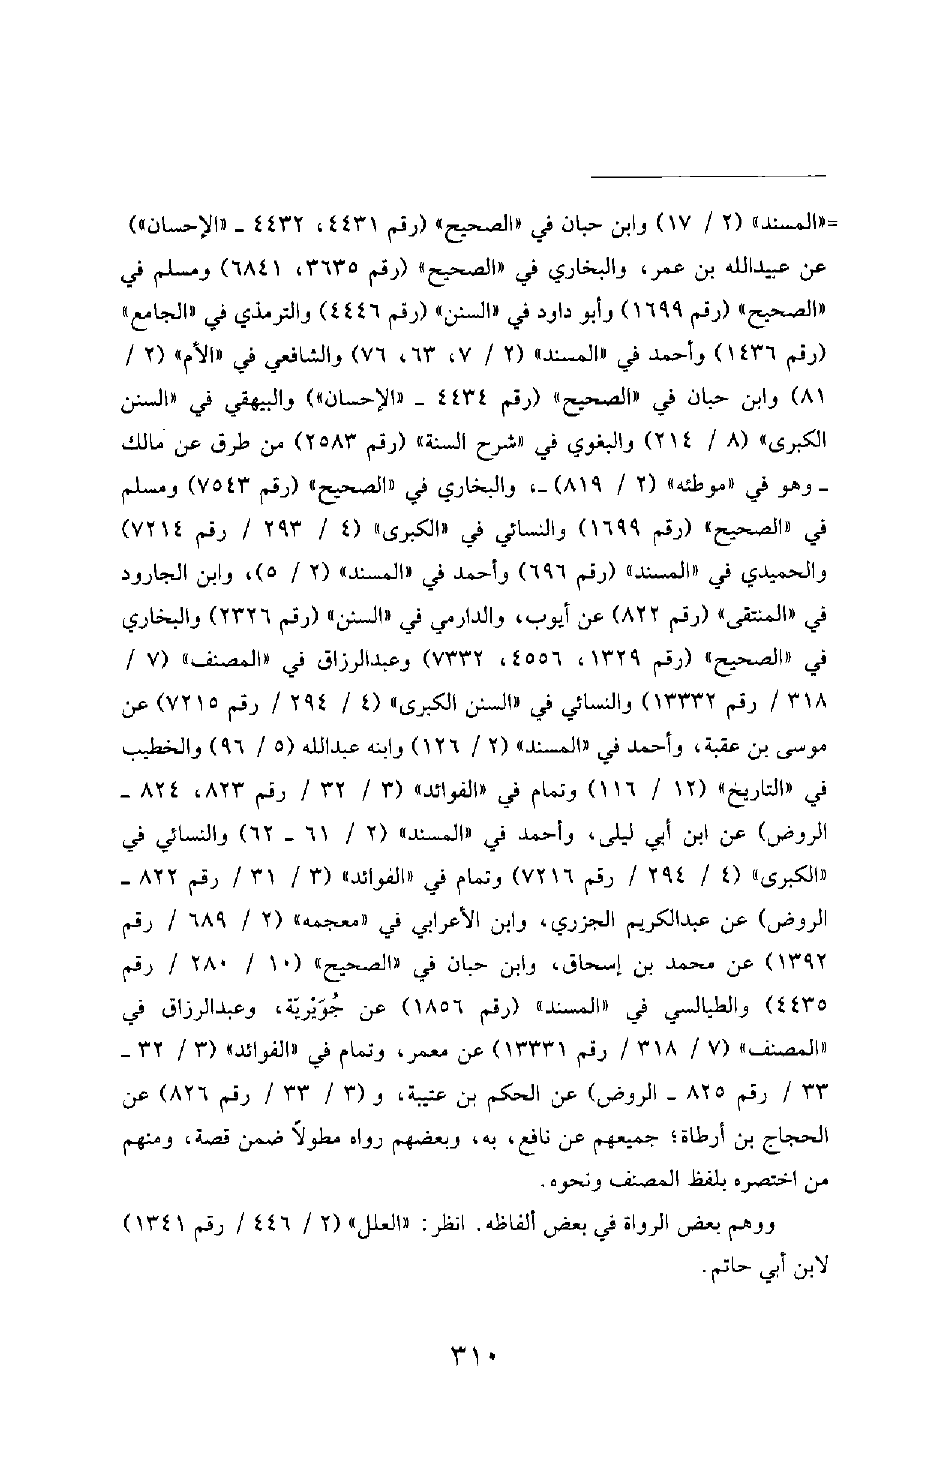 =«المسند» (٢ / ١٧) وابن حبان في «الصحيح» (رقم ٤٤٣١، ٤٤٣٢ ـ «الإحسان»)
عن عبيدالله بن عمر، والبخاري في «الصحيح» (رقم ٣٦٣٥، ٦٨٤١) ومسلم في
«الصحيح» (رقم ١٦٩٩) وأبو داود في «السنن» (رقم ٤٤٤٦) والترمذي في «الجامع»
(رقم ١٤٣٦) وأحمد في «المسند» (٢ / ٧، ٦٣، ٧٦) والشافعي في «الأم» (٢ /
٨١) وابن حبان في «الصحيح» (رقم ٤٤٣٤ ـ «الإحسان») والبيهقي في «السنن
الكبرى» (٨ / ٢١٤) والبغوي في «شرح السنة» (رقم ٢٥٨٣) من طرق عن مالك
ـ وهو في «موطئه» (٢ / ٨١٩) ـ، والبخاري في «الصحيح» (رقم ٧٥٤٣) ومسلم
في «الصحيح» (رقم ١٦٩٩) والنسائي في «الكبرى» (٤ / ٢٩٣ / رقم ٧٢١٤)
والحميدي في «المسند» (رقم ٦٩٦) وأحمد في «المسند» (٢ / ٥)، وابن الجارود
في «المنتقى» (رقم ٨٢٢) عن أيوب، والدارمي في «السنن» (رقم ٢٣٢٦) والبخاري
في «الصحيح» (رقم ١٣٢٩، ٤٥٥٦، ٧٣٣٢) وعبدالرزاق في «المصنف» (٧ /
٣١٨ / رقم ١٣٣٣٢) والنسائي في «السنن الكبرى» (٤ / ٢٩٤ / رقم ٧٢١٥) عن
موسى بن عقبة، وأحمد في «المسند» (٢ / ١٢٦) وابنه عبدالله (٥ / ٩٦) والخطيب
في «التاريخ» (١٢ / ١١٦) وتمام في «الفوائد» (٣ / ٣٢ / رقم ٨٢٣، ٨٢٤ ـ
الروض) عن ابن أبي ليلى، وأحمد في «المسند» (٢ / ٦١ ـ ٦٢) والنسائي في
«الكبرى» (٤ / ٢٩٤ / رقم ٧٢١٦) وتمام في «الفوائد» (٣ / ٣١ / رقم ٨٢٢ ـ
الروض) عن عبدالكريم الجزري، وابن الأعرابي في «معجمه» (٢ / ٦٨٩ / رقم
١٣٩٢) عن محمد بن إسحاق، وابن حبان في «الصحيح» (١٠ / ٢٨٠ / رقم
٤٤٣٥) والطيالسي في «المسند» (رقم ١٨٥٦) عن جُوَيْريّة، وعبدالرزاق في
«المصنف» (٧ / ٣١٨ / رقم ١٣٣٣١) عن معمر، وتمام في «الفوائد» (٣ / ٣٢ ـ
٣٣ / رقم ٨٢٥ ـ الروض) عن الحكم بن عتيبة، و (٣ / ٣٣ / رقم ٨٢٦) عن
الحجاج بن أرطاة؛ جميعهم عن نافع، به، وبعضهم رواه مطولاً ضمن قصة، ومنهم
من اختصره بلفظ المصنف ونحوه.
ووهم بعض الرواة في بعض ألفاظه. انظر: «العلل» (٢ / ٤٤٦ / رقم ١٣٤١)
لابن أبي حاتم.
٣١٠